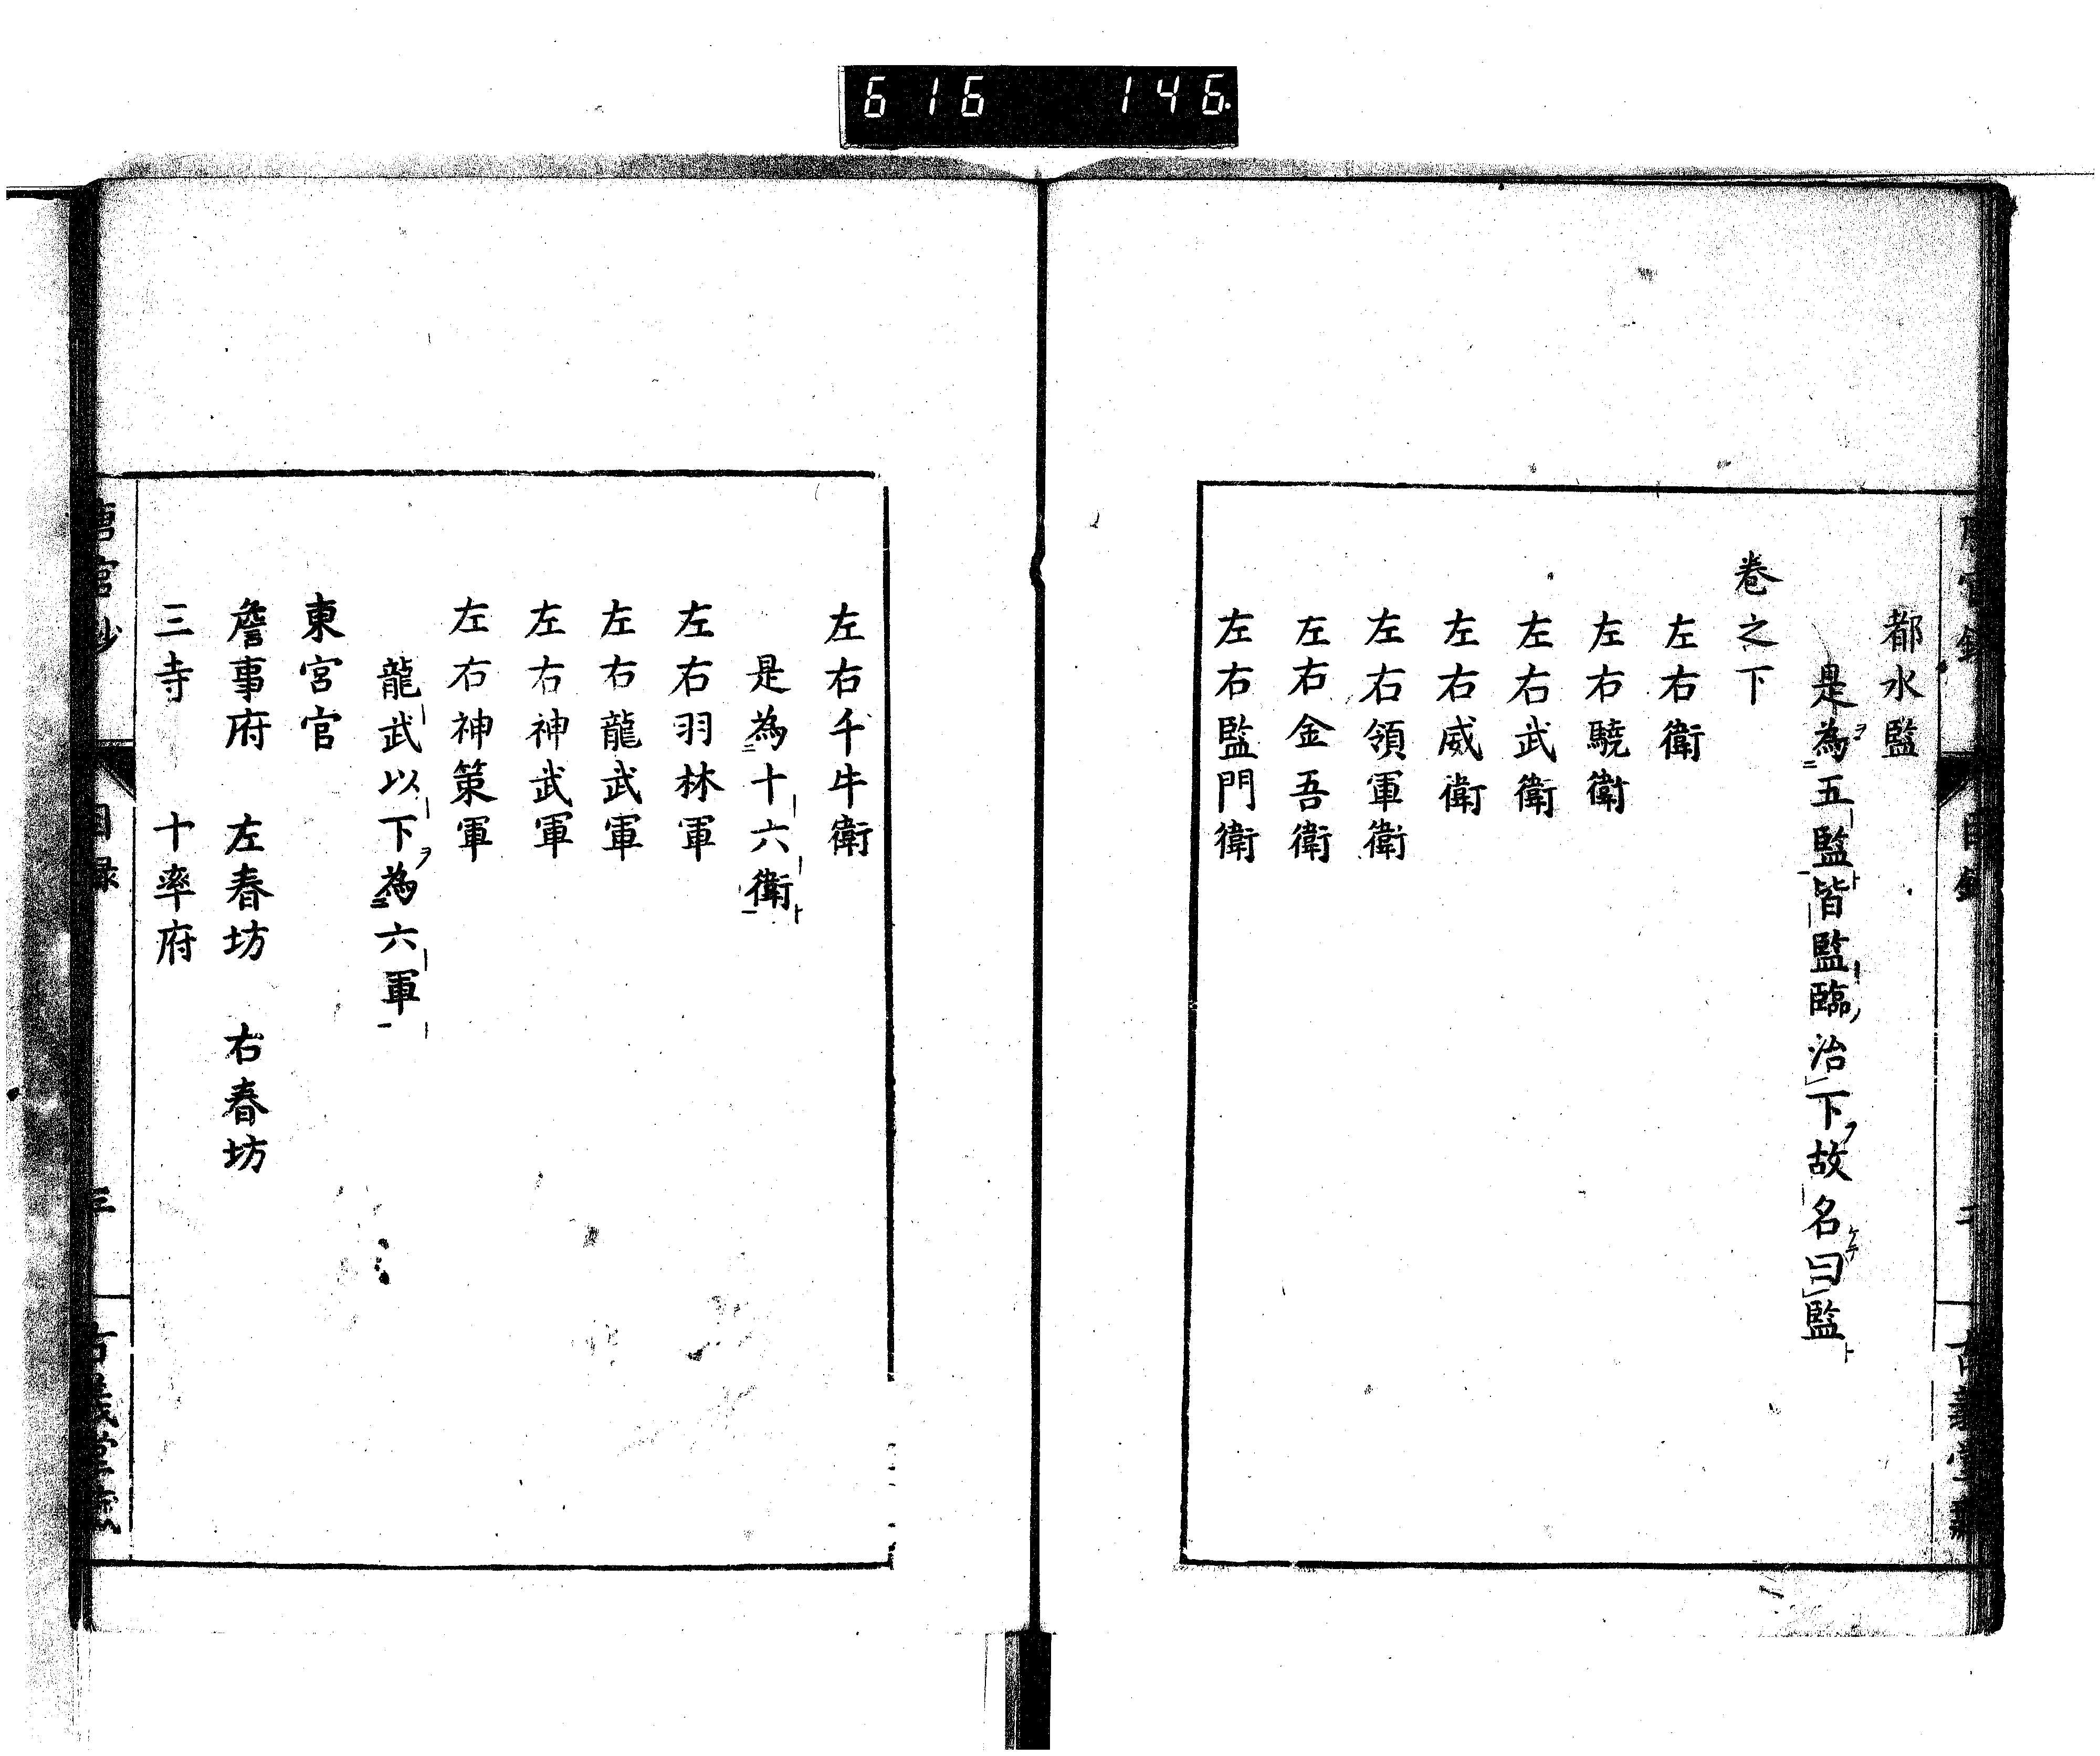 616 146
都水監
是為五監皆監臨治下故名曰監
卷之下
左右衛
左右驍衛
左右武衛
左右威衛
左右領軍衛
左右金吾衛
左右監門衛
左右千牛衛
是為十六衛
左右羽林軍
左右龍武軍
左右神武軍
左右神策軍
龍武以下為六軍
東宮官
詹事府 左春坊 右春坊
三寺 十率府